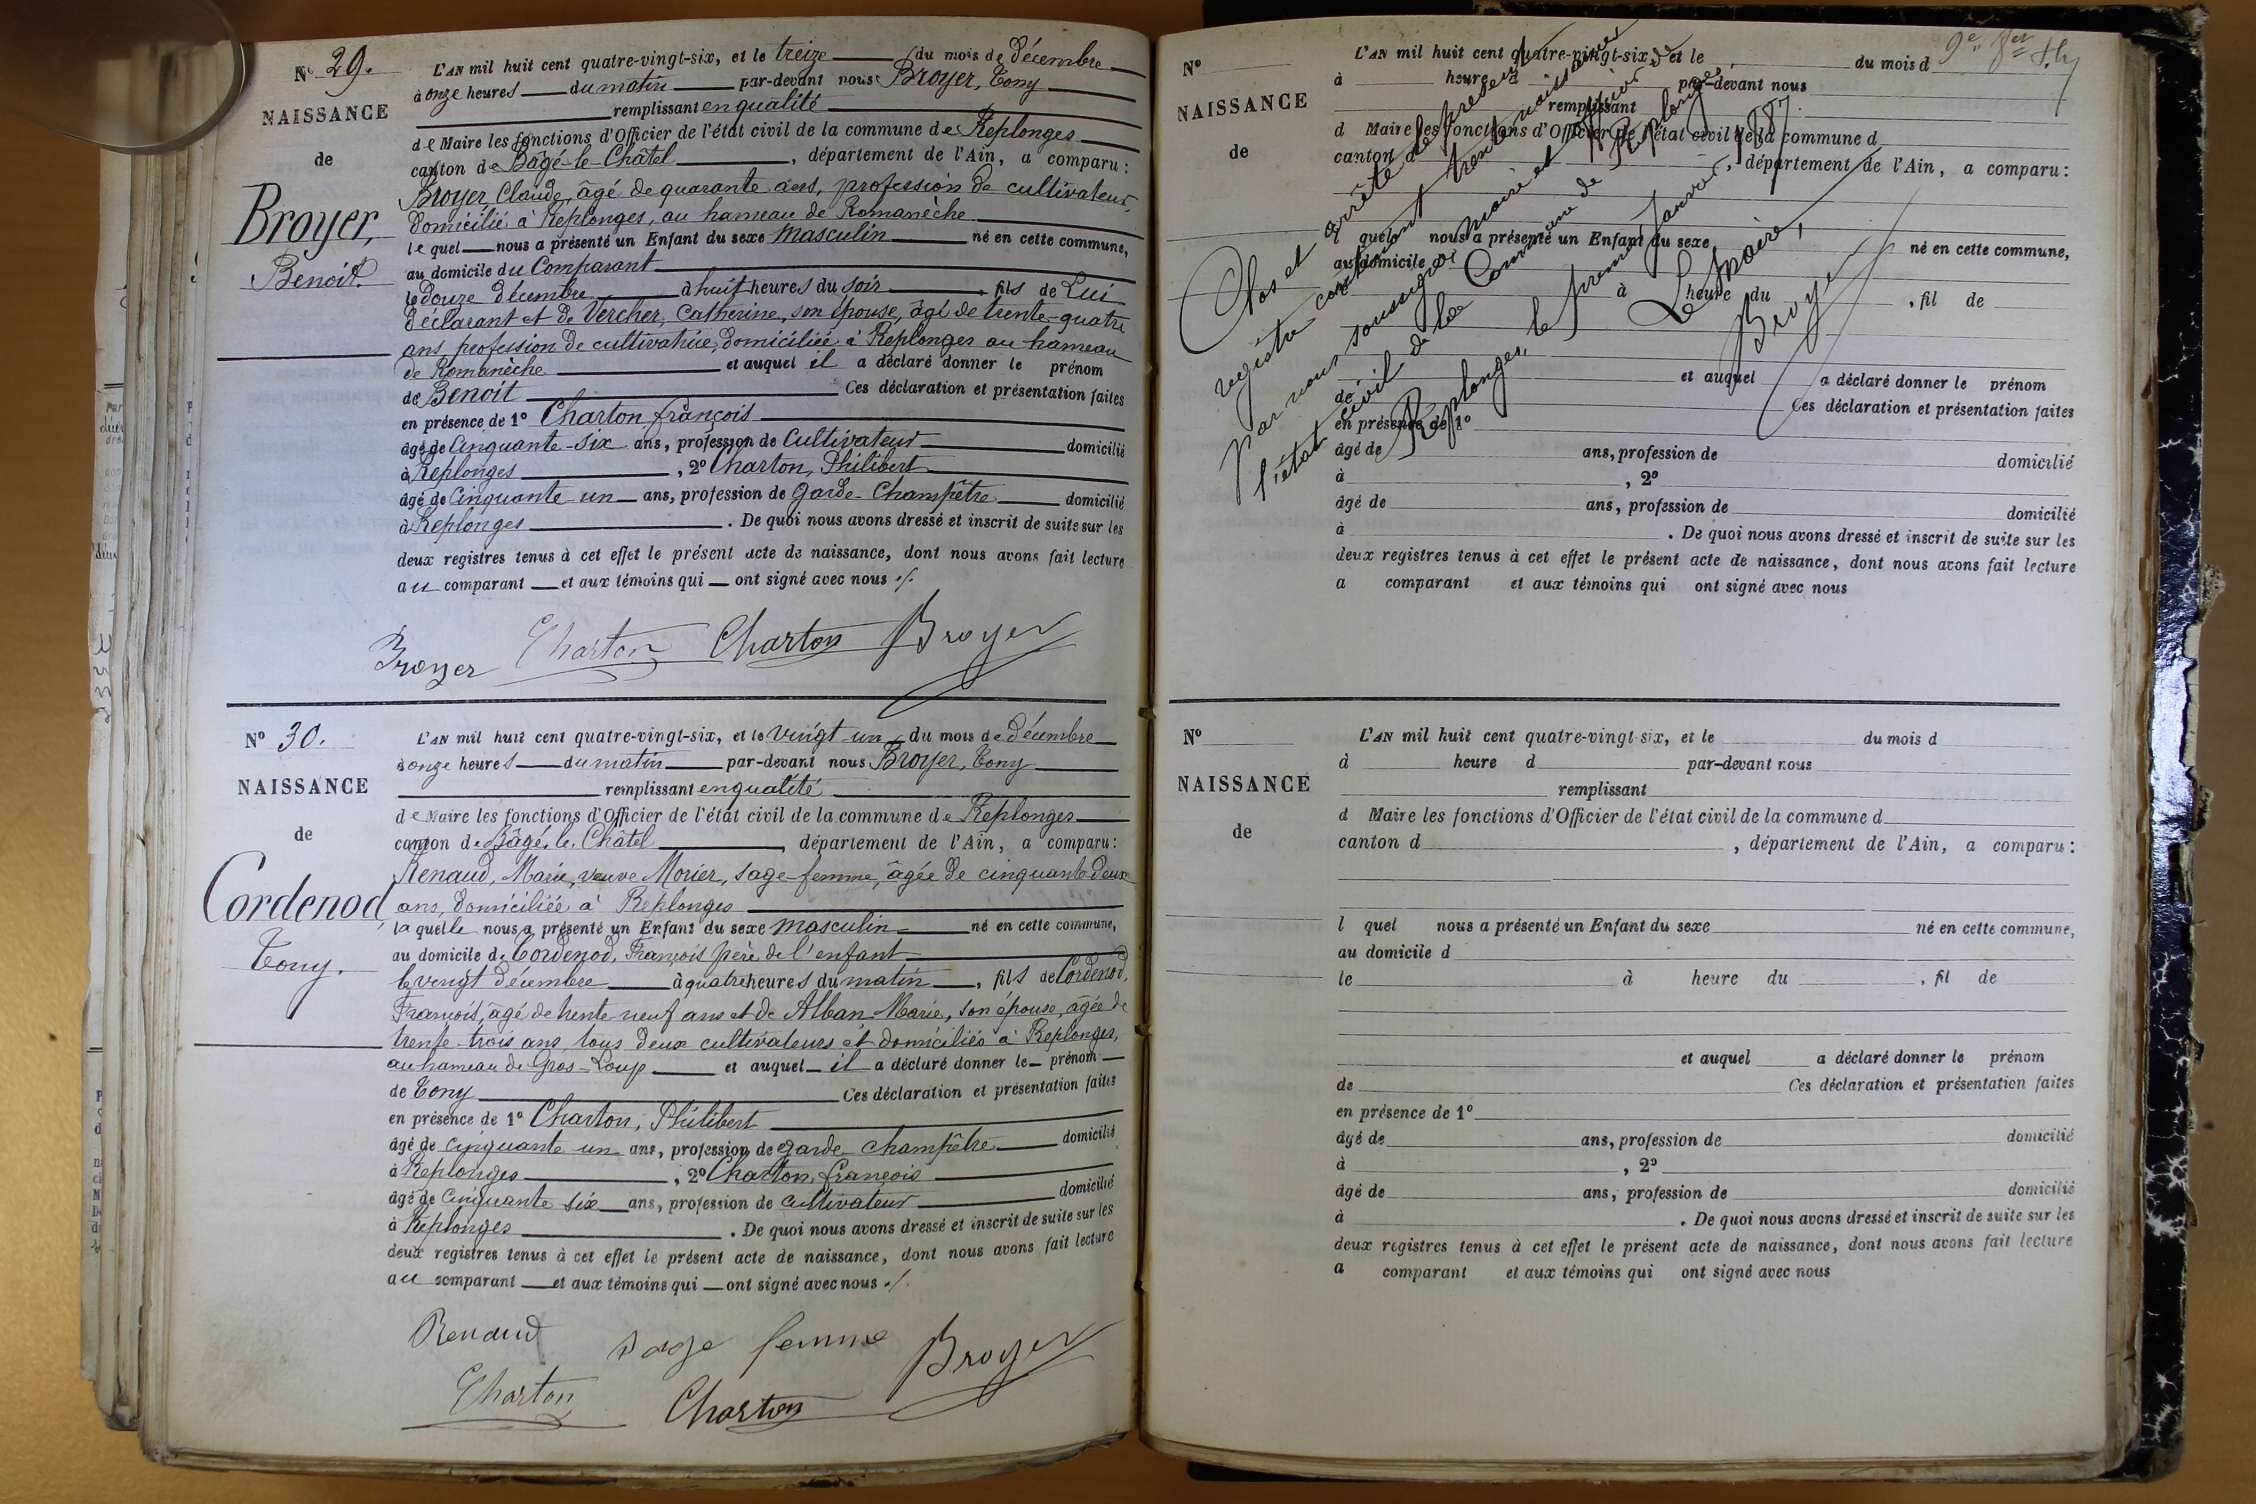 N° 29.
NAISSANCE
de
Broyer,
Benoit.
L'AN mil huit cent quatre-vingt-six, et le treize du mois de décembre
à onze heures du matin par-devant nous Broyer, Tony
remplissant en qualité
de Maire les fonctions d'Officier de l'état civil de la commune de Replonges
canton de Bâgé-le-Châtel, département de l'Ain, a comparu:
Broyer Claude, âgé de quarante ans, profession de cultivateur,
domicilié à Replonges, au hameau de Romanèche
le quel nous a présenté un Enfant du sexe masculin né en cette commune,
au domicile du Comparant
le douze décembre à huit heures du soir fils de Lui
déclarant et de Vercher, Catherine, son épouse, âgé de trente-quatre
ans, profession de cultivatrice, domiciliée à Replonges au hameau
de Romanèche et auquel il a déclaré donner le prénom
de Benoit Ces déclaration et présentation faites
en présence de 1° Charton françois
âgé de cinquante-six ans, profession de Cultivateur domicilié
à Replonges, 2° Charton, Philibert
âgé de cinquante un ans, profession de garde-Champêtre domicilié
à Replonges. De quoi nous avons dressé et inscrit de suite sur les
deux registres tenus à cet effet le présent acte de naissance, dont nous avons fait lecture
au comparant et aux témoins qui ont signé avec nous ./.
Broyer Charton Charton Broyer
N° 30.
NAISSANCE
de
Cordenod,
Tony.
L'AN mil huit cent quatre-vingt-six, et le vingt un du mois de décembre
à onze heures du matin par-devant nous Broyer, Tony
remplissant en qualité
de Maire les fonctions d'Officier de l'état civil de la commune de Replonges
canton de Bâgé-le-Châtel, département de l'Ain, a comparu:
Renaud, Marie, veuve Morier, sage-femme, âgée de cinquante deux
ans, domiciliée à Replonges
laquelle nous a présenté un Enfant du sexe masculin né en cette commune,
au domicile de Cordenod, François père de l'enfant
le vingt décembre à quatre heures du matin, fils de Cordenod,
François, âgé de trente-neuf ans et de Alban Marie, son épouse, âgée de
trente-trois ans, tous deux cultivateurs et domiciliés à Replonges,
au hameau de Gros-Loup et auquel il a déclaré donner le prénom
de Tony Ces déclaration et présentation faites
en présence de 1° Charton, Philibert
âgé de cinquante un ans, profession de garde champêtre domicilié
à Replonges, 2° Charton, françois
âgé de cinquante six ans, profession de cultivateur domicilié
à Replonges. De quoi nous avons dressé et inscrit de suite sur les
deux registres tenus à cet effet le présent acte de naissance, dont nous avons fait lecture
au comparant et aux témoins qui ont signé avec nous ./.
Renaud sage femme Broyer
Charton Charton
N°
NAISSANCE
de
L'AN mil huit cent quatre-vingt-six, et le du mois d
à heure d par-devant nous
remplissant
d Maire les fonctions d'Officier de l'état civil de la commune d
canton d, département de l'Ain, a comparu:
l quel nous a présenté un Enfant du sexe né en cette commune,
au domicile d
à heure du, fil de
et auquel a déclaré donner le prénom
de Ces déclaration et présentation faites
en présence de 1°
âgé de ans, profession de domicilié
à, 2°
âgé de ans, profession de domicilié
à. De quoi nous avons dressé et inscrit de suite sur les
deux registres tenus à cet effet le présent acte de naissance, dont nous avons fait lecture
a comparant et aux témoins qui ont signé avec nous
Clos et arrêté le présent
registre contenant trente naissances
par nous soussigné maire et officier de
l'état civil de la Commune de Replonges
Replonges, le premier Janvier, 1887
Le Maire,
Broyer
N°
NAISSANCE
de
L'AN mil huit cent quatre-vingt-six, et le du mois d
à heure d par-devant nous
remplissant
d Maire les fonctions d'Officier de l'état civil de la commune d
canton d, département de l'Ain, a comparu:
l quel nous a présenté un Enfant du sexe né en cette commune,
au domicile d
le à heure du, fil de
et auquel a déclaré donner le prénom
de Ces déclaration et présentation faites
en présence de 1°
âgé de ans, profession de domicilié
à, 2°
âgé de ans, profession de domicilié
à. De quoi nous avons dressé et inscrit de suite sur les
deux registres tenus à cet effet le présent acte de naissance, dont nous avons fait lecture
a comparant et aux témoins qui ont signé avec nous